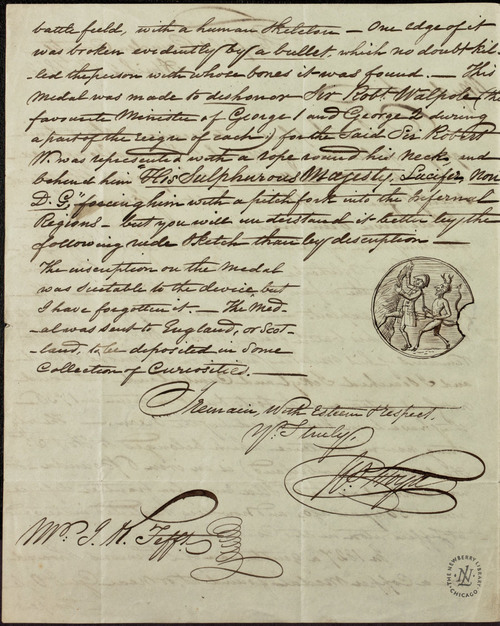 battle field, with a human skeleton — One edge of it
was broken evidently by a bullet, which no doubt kil-
-led the person with whose bones it was found. — This
Medal was made to dishonor Sir Robt Walpole (the
favourite Minister of George 1 and George 2 during
a part of the reign of each;) for the said Sir Robert
W. was represented with a rope round his neck, and
behind him His Sulphurous Majesty, Lucifer, Non
D. G; forcing him with a pitch fork into the Infernal
Regions — but you will understand it better by the
following rude Sketch than by description —
The inscription on the Medal
was suitable to the device but
I have forgotten it. — The Med-
-al was sent to England, or Scot-
-land, to be deposited in Some
Collection of Curiosities. —
I remain, With Esteem & respect.
Yrs truly,
Wm.
Mr. I. K. Tefft.
THE NEWBERRY LIBRARY
CHICAGO